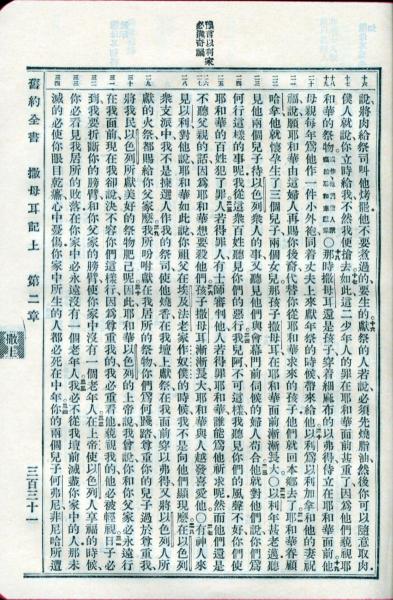 說、將肉給祭司叫他烤罷、他不要煮過的、要生的。獻祭的人若說、必須先燒脂油、然後你可以隨意取肉、
僕人就說、你立時給我、不然我便搶去。如此這二少年人的罪在耶和華面前甚重了、因爲他們藐視耶
和華的祭物。○那時撒母耳還是孩子、穿着細麻布的以弗得、侍立在耶和華面前。他
母親每年爲他作一件小外袍、同着丈夫上來獻年祭的時候帶來給他。以利爲以利加拿和他的妻祝
福、說、願耶和華由這婦人再賜你後裔、代替你從耶和華求來的孩子。他們就回本鄉去了。耶和華眷顧
哈拿、他就懷孕生了三個兒子、兩個女兒。那孩子撒母耳在耶和華面前漸漸長大。○以利年甚老邁、聽
見他兩個兒子待以色列衆人的事、又聽見他們與會幕門前伺候的婦人苟合、他就對他們說、你們爲
何行這樣的事呢、我從這衆百姓聽見你們的惡行。我兒阿、不可這樣、我聽見你們的風聲不好、你們使
耶和華的百姓犯了罪。人若得罪人、有士師審判他、人若得罪耶和華、誰能爲他祈求呢。然而他們還是
不聽父親的話、因爲耶和華想要殺他們。孩子撒母耳漸漸長大、耶和華與人越發喜愛他。○有神人來
見以利、對他說、耶和華如此說、你祖父在埃及法老家作奴僕的時候、我不是向他們顯現麼。在以色列
衆支派中、我不是揀選人作我的祭司、使他燒香、在我壇上獻祭、在我面前穿以弗得、又將以色列人所
獻的火祭都賜給你父家麼。我所吩咐獻在我居所的祭物、你們爲何踐踏、尊重你的兒子過於尊重我、
將我民以色列所獻美好的祭物肥己呢。因此耶和華以色列的上帝說、我曾說、你和你父家必永遠行
在我面前、現在我卻說、決不容你們這樣行、因爲尊重我的、我必重看他、藐視我的、他必被輕視。日子必
到、我要折斷你的膀臂、和你父家的膀臂、使你家中沒有一個老年人。在上帝使以色列人享福的時候、
你必看見我居所的敗落、在你家中必永遠沒有一個老年人。我必不從我壇前滅盡你家中的人、那未
滅的必使你眼目乾癟、心中憂傷、你家中所生的人都必死在中年。你的兩個兒子何弗尼非尼哈所遭
舊約全書 撒母耳記上 第二章 三百三十一
撒上